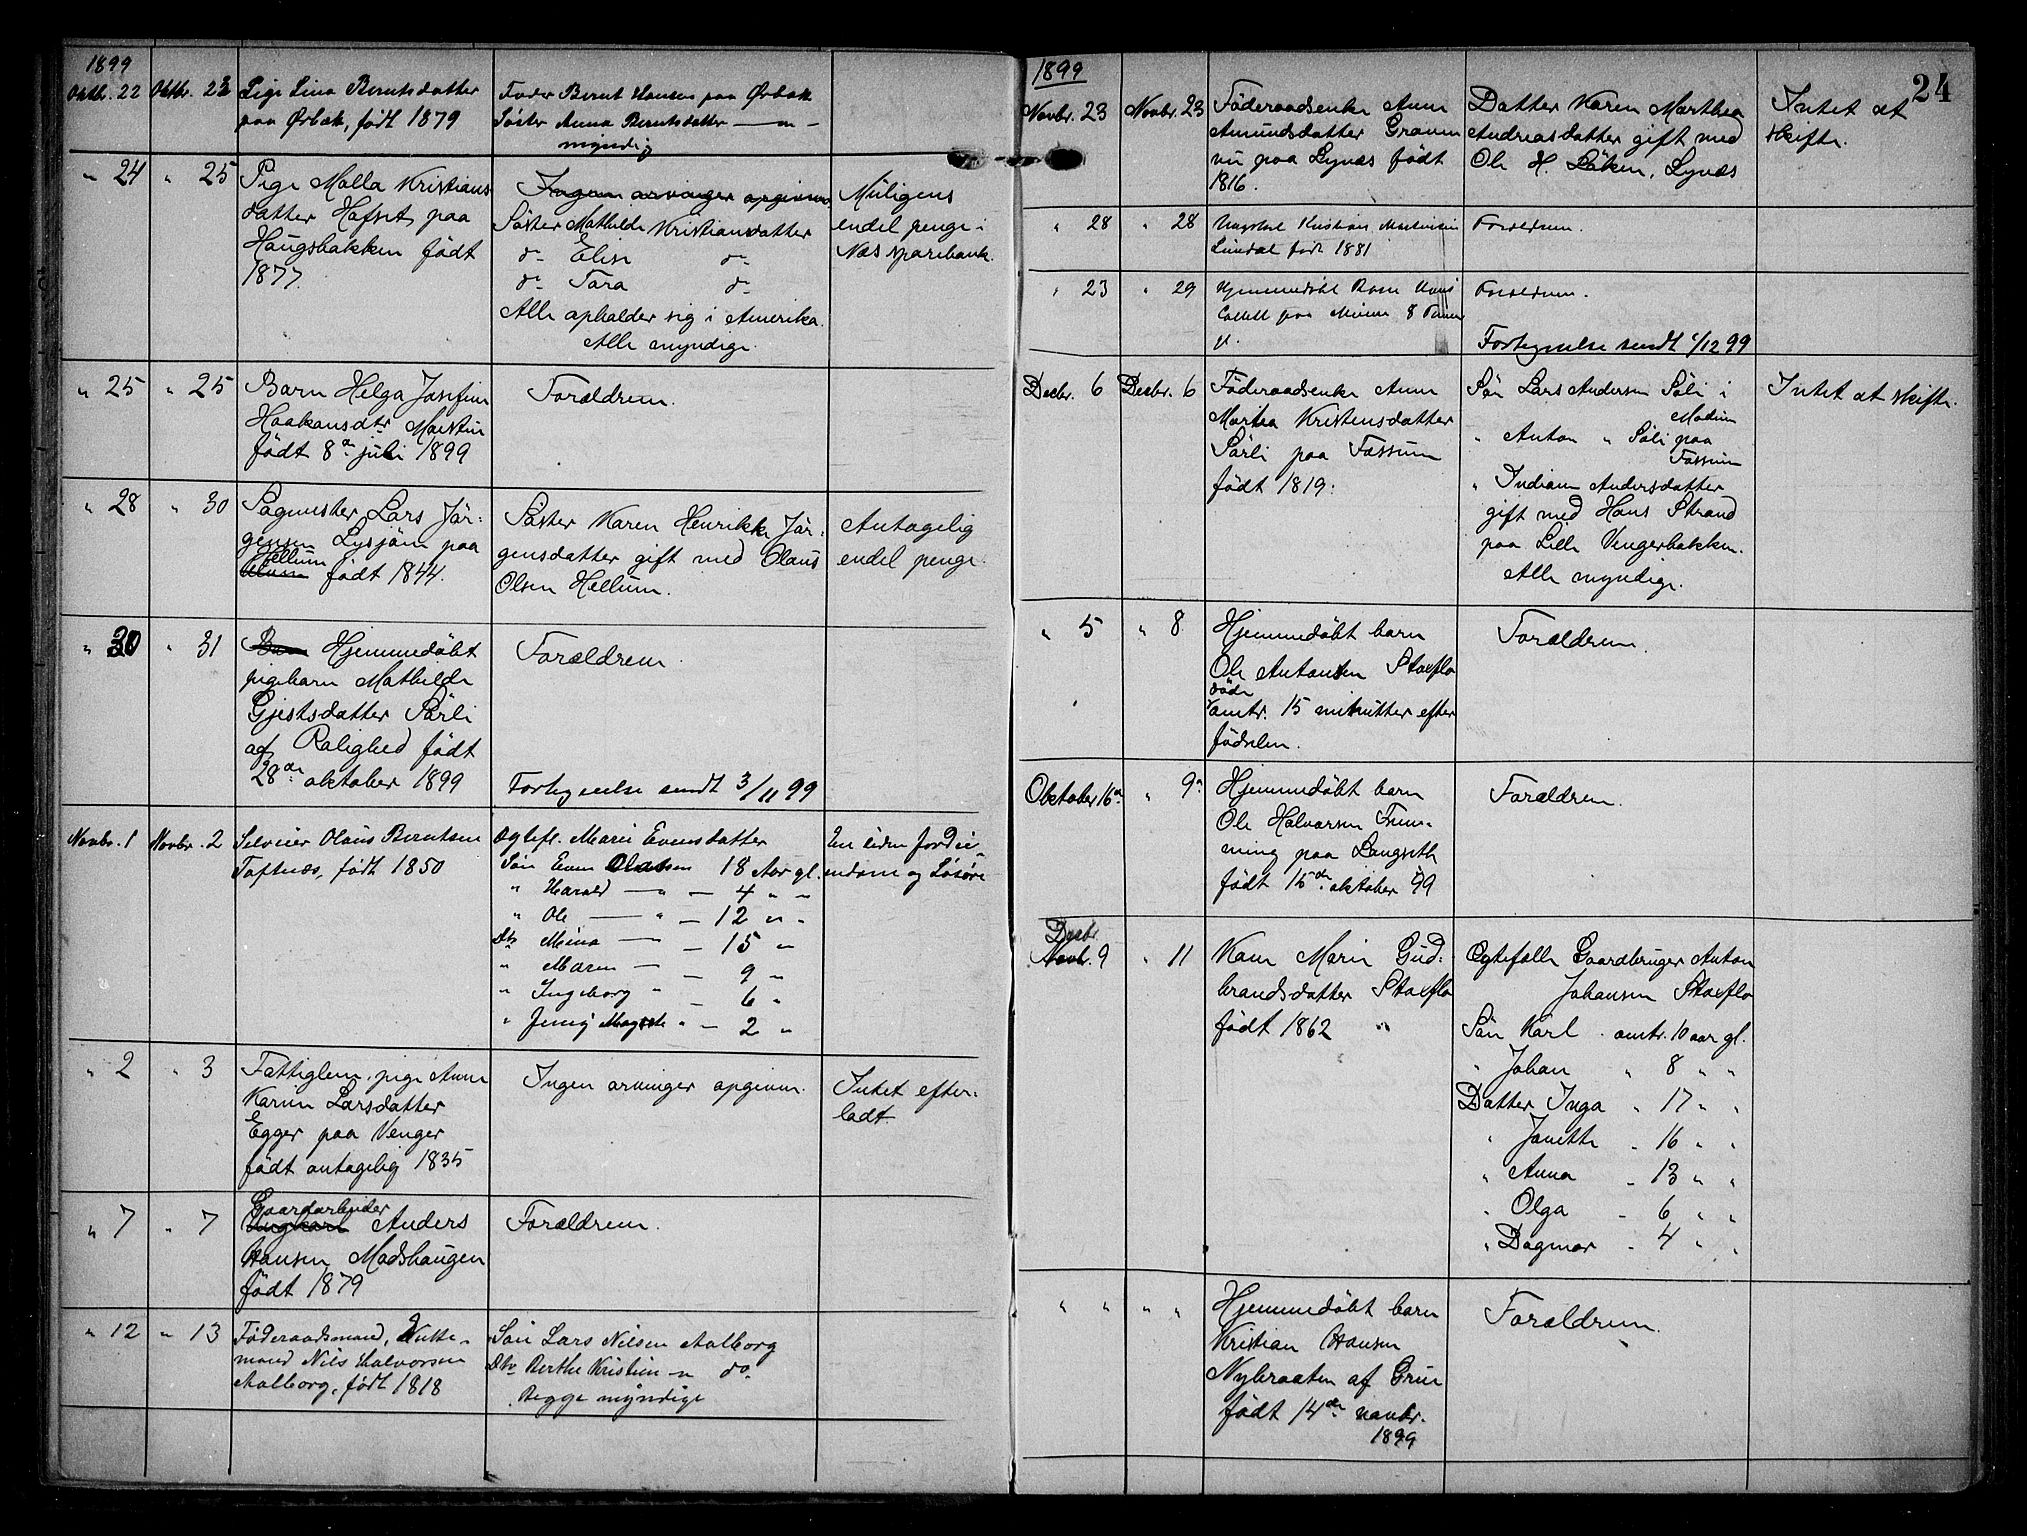 1899
Oktb. 22 Oktbr. 23 Pige Lina Berntsdatter
paa Ørbæk, født 1879
Fader Bernt Hansen paa Ørbæk
Søster Anna Berntsdatter — " —
myndig
" 24 " 25 Pige Malla Kristians
datter Hafset, paa
Haugsbakken født
1877.
Ingen arvinger opgivne
Søster Mathilde Kristiansdatter
do Elise do
do Tora do
Alle opholder sig i Amerika.
Alle myndige.
Muligens
endel penge i
Næs sparebank.
" 25 " 25 Barn Helga Josefine
Haakansdtr
født 8de juli 1899
Forældrene.
" 28 " 30 Sagmester Lars Jör-
gensen Lysjøen paa
Hellum
født 1844.
Søster Karen Henrikke Jör-
gensdatter gift med Olaus
Olsen Hellum.
Antagelig
endel penge.
" 30 " 31 Barn Hjemmedøbt
pigebarn Mathilde
Gjestsdatter Sörli
af Rolighed født
28de oktober 1899
Forældrene.
Fortegnelse sendt 3/11 99
Novbr. 1 Novbr. 2 Selveier Olaus Berntsen
Toftnæs, født 1850
Ægtefl. Marie Evensdatter
Søn Even Olausen 18 Aar gl.
" Harald — " — 4 " "
" Ole — " — 12 " "
Dtr Mina — — 15 "
" Maren — — 9 "
" Ingeborg " — 6 "
" Jenny " — 2 "
En liden jordei-
endom og Løsøre
" 2 " 3 Fattiglem, pige Anne
Karen Larsdatter
Egger paa Venger
født antagelig 1835
Ingen arvinger opgivne.
Intet efter-
ladt.
" 7 " 7 Gaardarbeider
Ungkarl Anders
Hansen Madshaugen
født 1879
Forældrene.
" 12 " 13 Föderaadsmand, Enke-
mand Nils Halvorsen
Aalborg, født 1818
Søn Lars Nilsen Aalborg
Dtr Berthe Kristine — " do.
Begge myndige
24
1899
Novbr. 23 Novbr. 23 Föderaadsenke Anne
Amundsdatter Graven
nu paa Lynæs født
1816.
Datter Karen Marthea
Andreasdatter gift med
Ole H. Løken, Lynæs
Intet at
skifte.
" 28 " 28 Ungkarl Kristian Martinsen
Lundal født 1881
Forældrene.
" 23 " 29 Hjemmedøbt Barn Hans
paa 8 Timer
gl.
Forældrene.
Fortegnelse sendt 1/12 99
Decbr. 6 Decbr. 6 Föderaadsenke Anne
Martea Kristensdatter
Sörli paa Fossum
født 1819.
Søn Lars Andersen Söli i
Modum
" Anton " Söli paa
Fossum
" Indiane Andersdatter
gift med Hans Strand
paa Lille Vengerbakken.
Alle myndige.
Intet at skifte.
" 5 " 8 Hjemmedøbt barn
Ole Antonsen Storflo
døde
omtr. 15 minutter efter
fødselen.
Forældrene.
Oktober 16de " 9de Hjemmedøbt barn
Ole Halvorsen Frem-
ming paa Langseth
født 15de oktober 99
Forældrene.
Decbr
Novb. 9 " 11 Kone Marie Gud-
brandsdatter Storflo
født 1862
Ægtefælle Gaardbruger Anton
Johansen Storflo
Søn Karl omtr. 10 aar gl.
" Johan " 8 " "
Datter Inga " 17 " "
" Janette " 16 " "
" Anna " 13 " "
" Olga " 6 " "
" Dagmar " 4 " "
" " " " Hjemmedøbt barn
Kristian Hansen
Nybraaten af Grue
født 14de novbr.
1899
Forældrene.